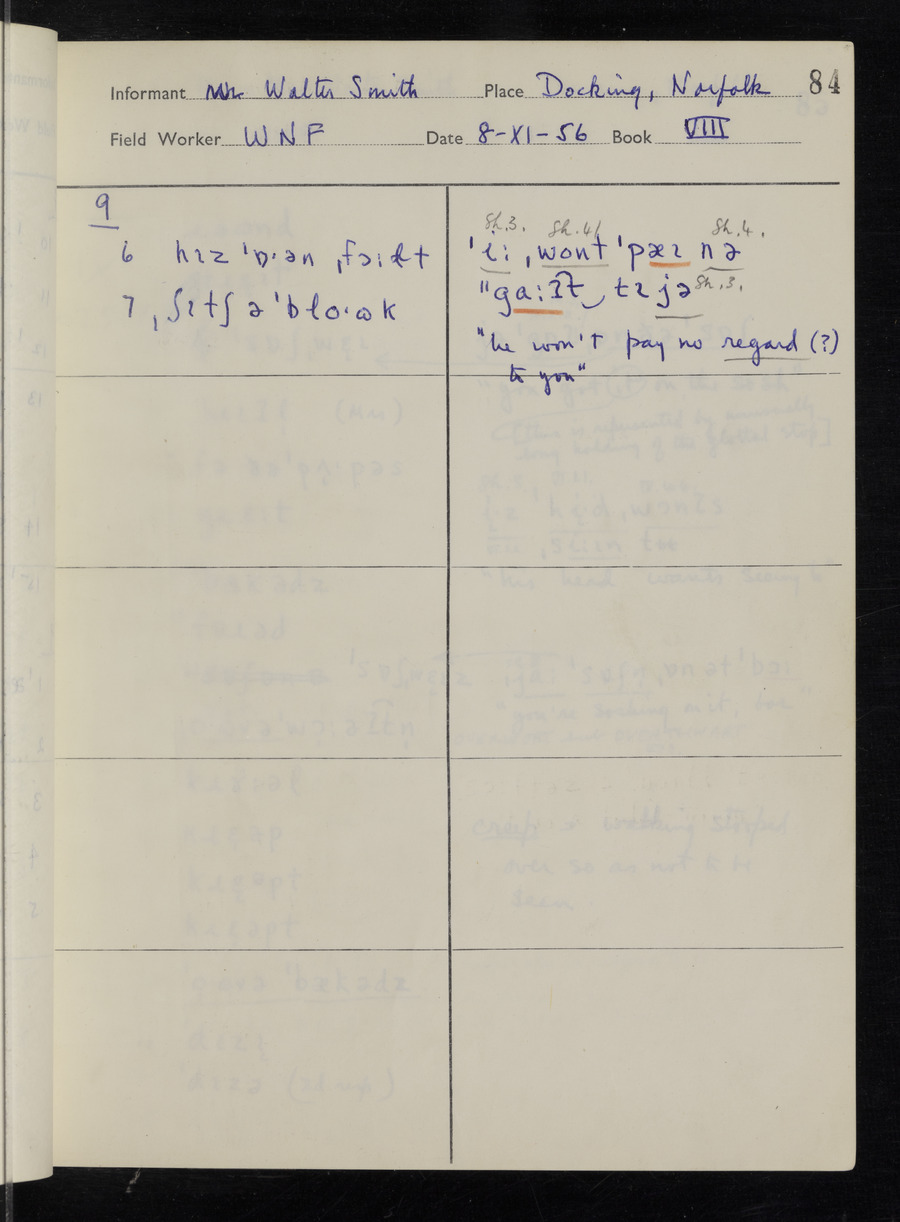 Informant Mr Walter Smith Place Docking, Norfolk 84
Field Worker WNF Date 8-XI-56 Book VIII
9
6 hɪz ˈɒ·ən ˌfɔːɫt
7 ˌʃɪtʃ ə ˈbloʊk
Sh.3. Sh.4/ Sh.4.
ˈi: ˌwont ˈpæɪ nə
"ga:ʔt‿tɪ jə Sh.3.
"he won't pay no regard (?)
to you"